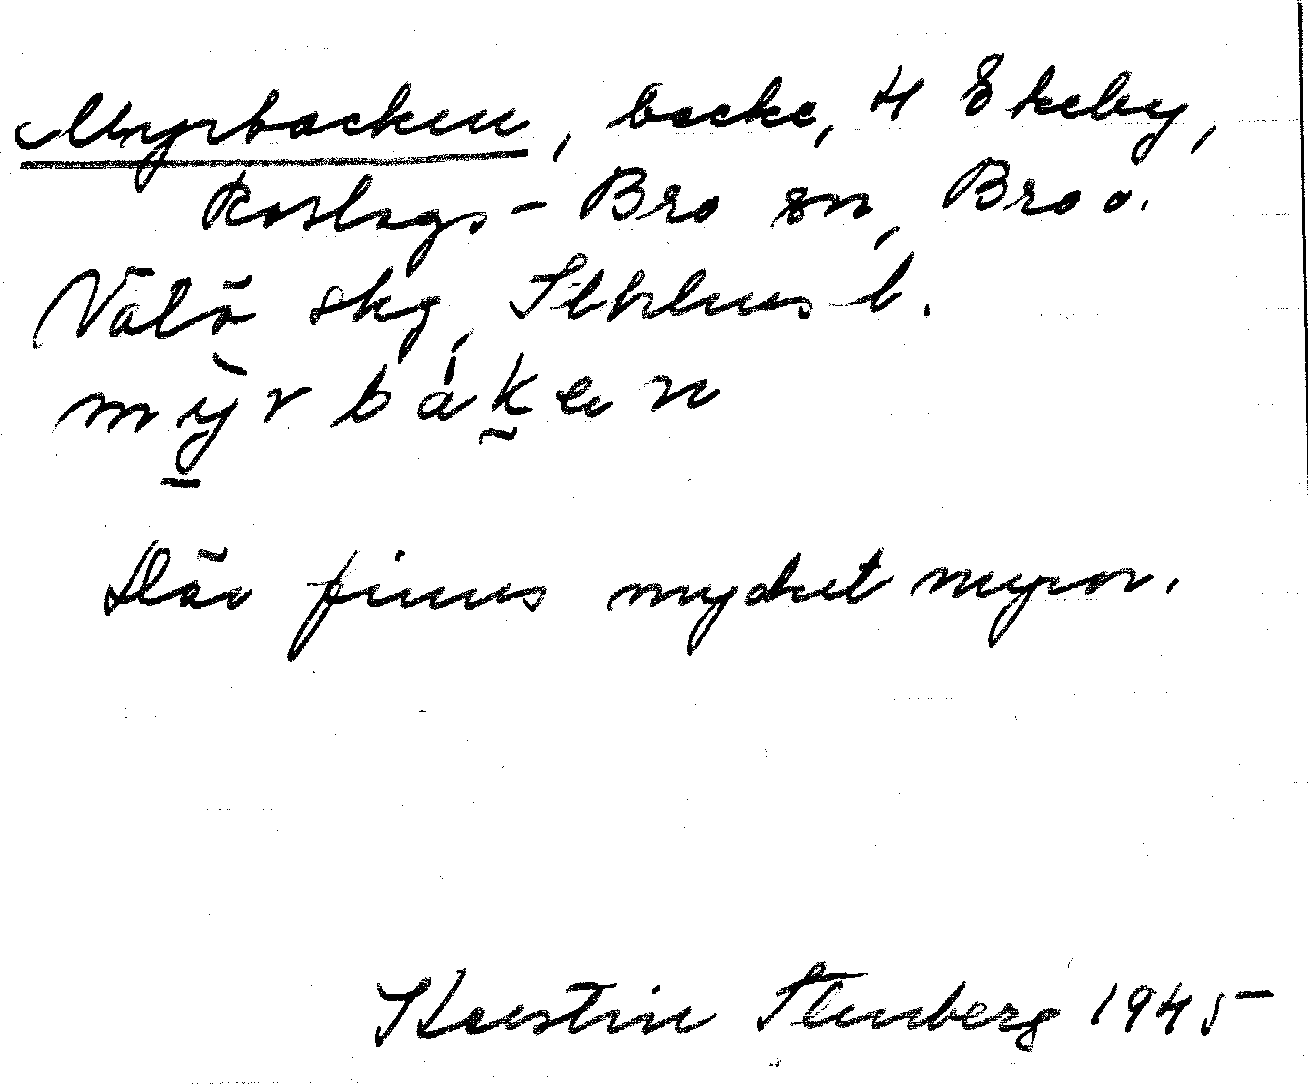 Myrbacken, backe, 4 Ekeby,
Roslags-Bro sn, Bro o.
Välö skg, Sthlms l.
mỳrbáken
Där finns mycket myror.
Kerstin Stenberg 1945